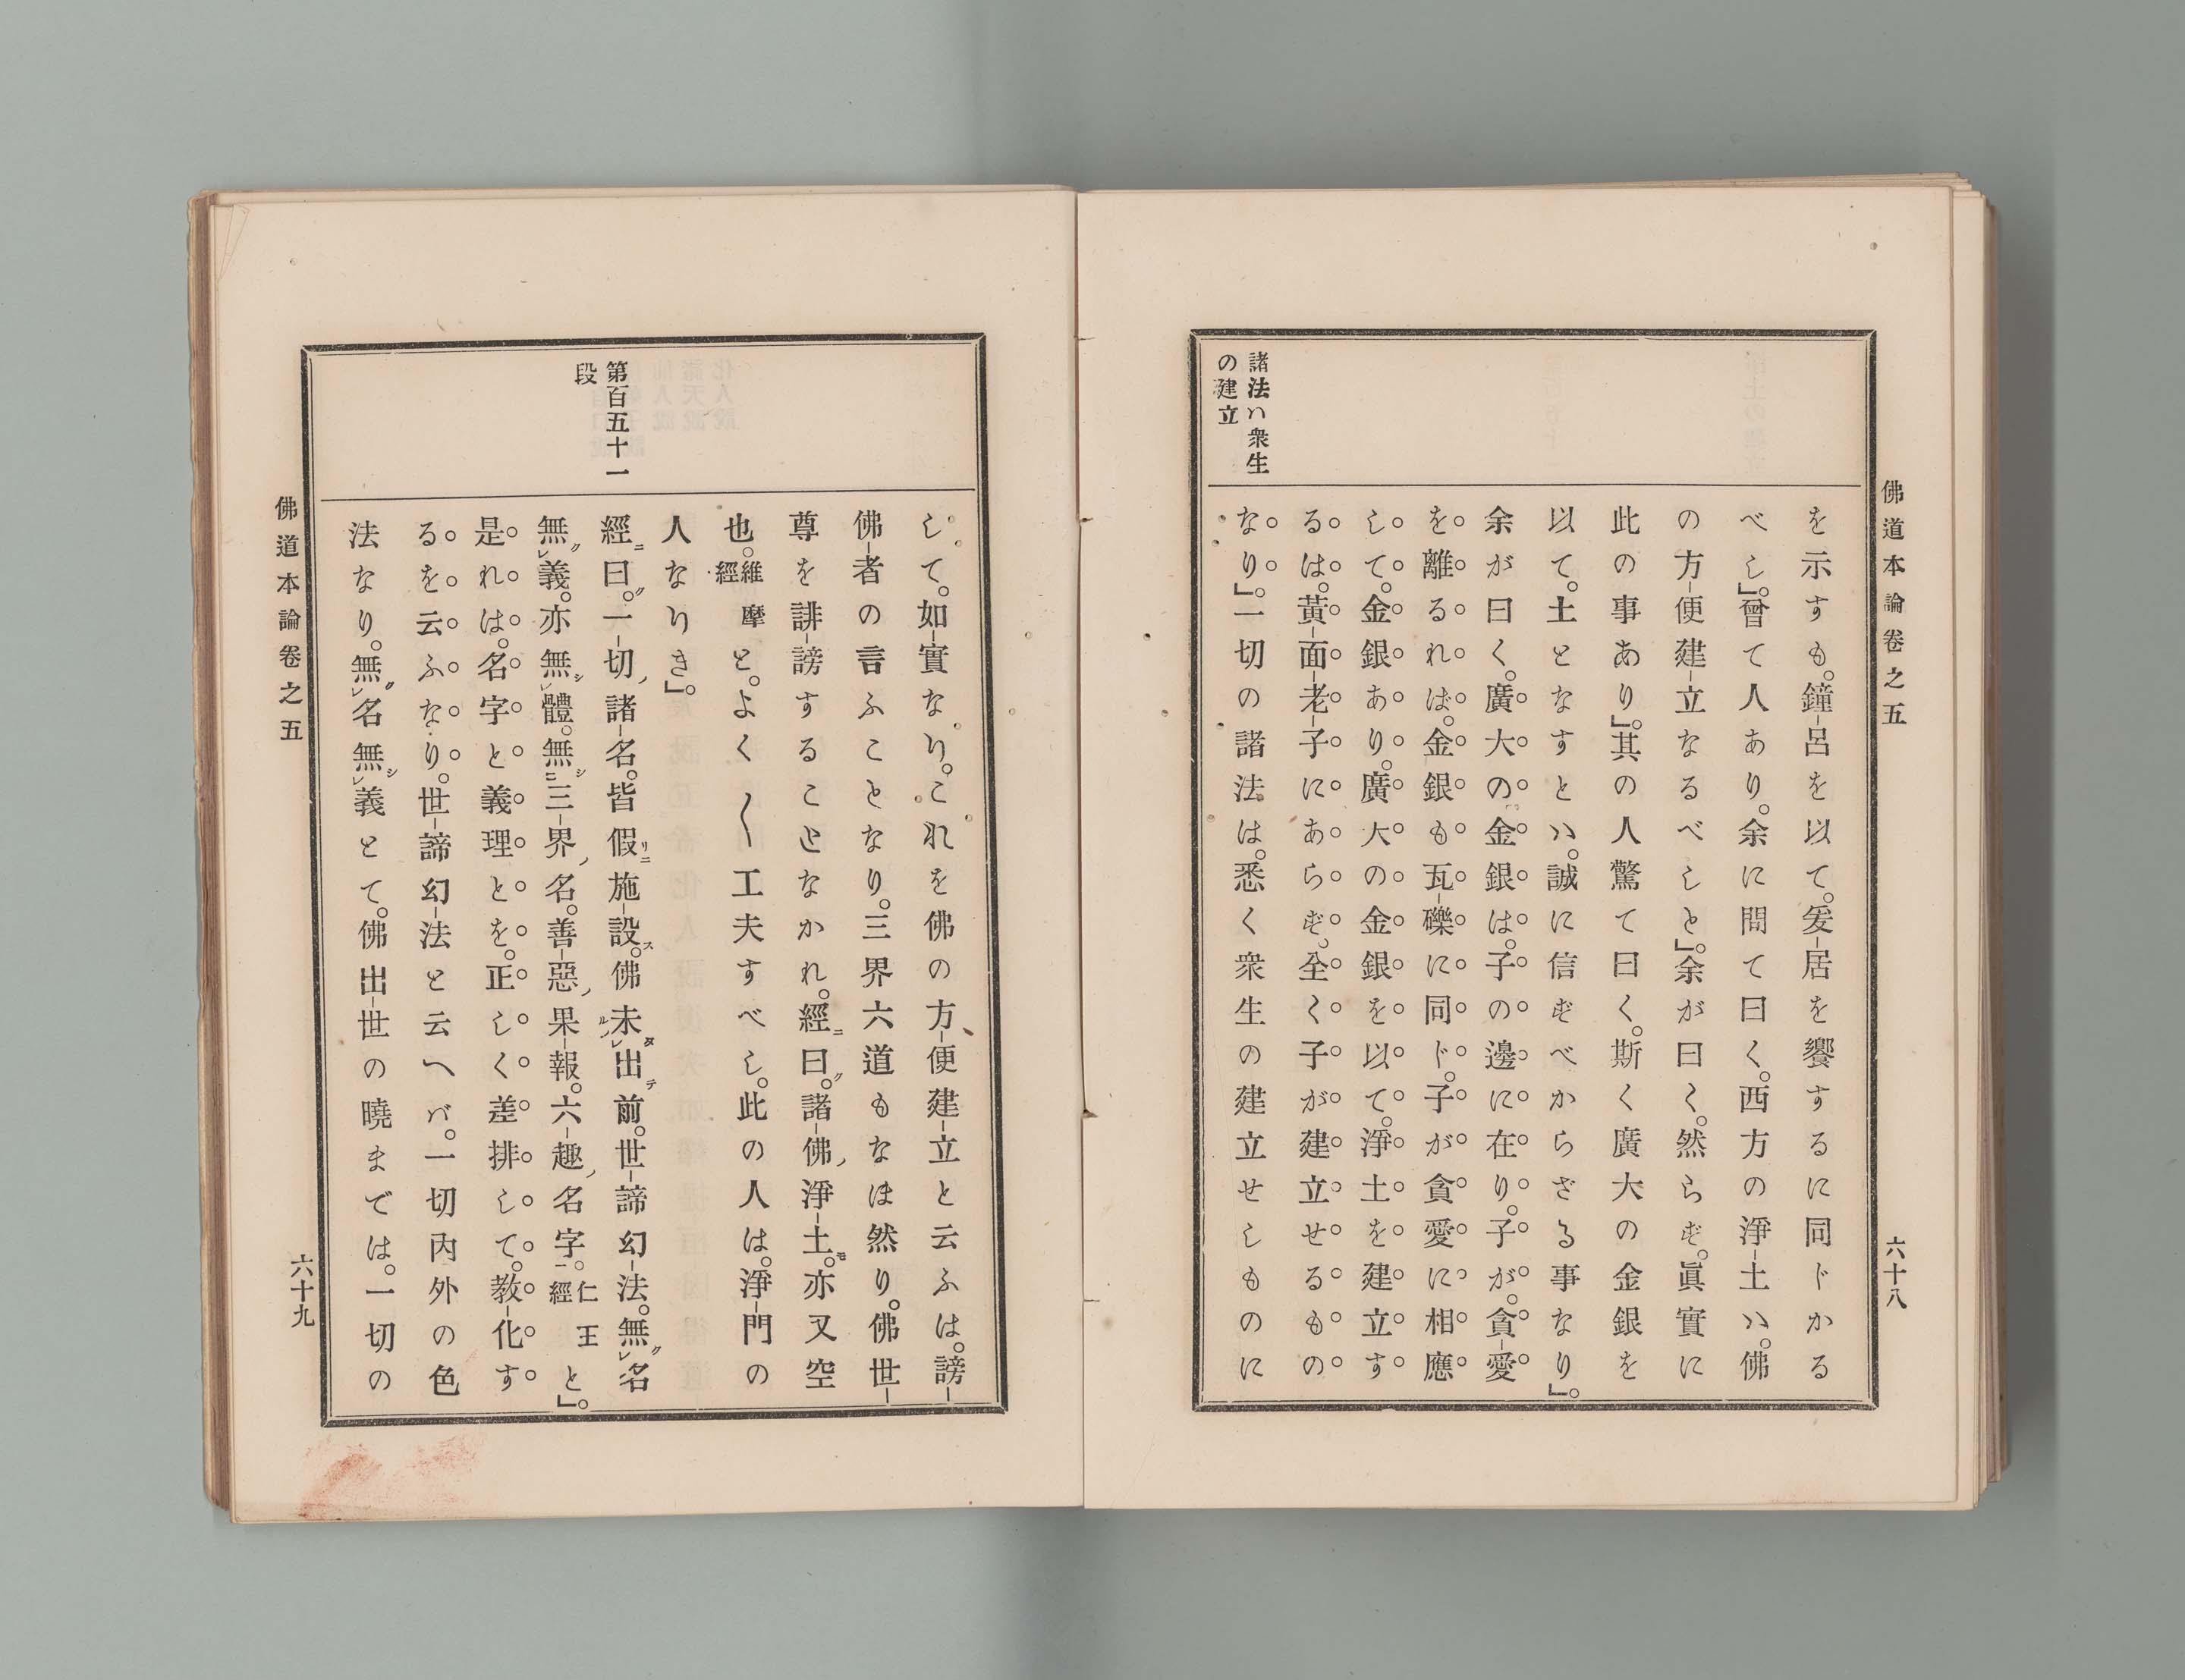 佛道本論卷之五
六十八
諸法ハ衆生
の建立
を示すも。鐘-呂を以て。爰-居を饗するに同ドかる
べし」。曾て人あり。余に問て曰く。西方の淨-土ハ。佛
の方-便建-立なるべしと」。余が曰く。然らず。眞實に
此の事あり」。其の人驚て曰く。斯く廣大の金銀を
以て。土となすとハ。誠に信ずべからざる事なり」。
余が曰く。廣大の金銀は。子の邊に在り。子が。貪-愛
を離るれば。金銀も瓦-礫に同ド。子が貪愛に相應
して。金銀あり。廣大の金銀を以て。淨土を建立す
るは。黃-面-老-子にあらず。全く子が建立せるもの
なり」。一切の諸法は。悉く衆生の建立せしものに
して。如-實なり。これを佛の方-便建-立と云ふは。謗-
佛-者の言ふことなり。三界六道もなほ然り。佛世-
尊を誹-謗することなかれ。經ニ曰ク。諸-佛ノ淨-土。モ亦又空
也。維摩經と。よく〱工夫すべし。此の人は。淨-門の
人なりき」。
第百五十一
段
經ニ曰ク。一-切ノ諸-名。皆假リニ施-設ス。佛未タルレ出テ前。世-諦幻-法。無クレ名
無クレ義。亦無シレ體。無シ三三-界ノ名。善-惡ノ果-報。六-趣ノ名字一。仁王經と」。
是れは。名字と義理とを。正しく差排して。教-化す
るを云ふなり。世-諦幻-法と云へバ。一切內外の色
法なり。無クレ名無シレ義とて。佛出-世の曉までは。一切の
佛道本論卷之五
六十九